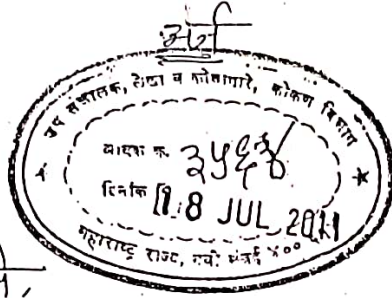 अर्ज
उप संचालक, लेखा व कोषागारे, कोकण विभाग
आवक क्र. ३५६४
दिनांक 18 JUL 2011
महाराष्ट्र राज्य, नवी मुंबई ४००